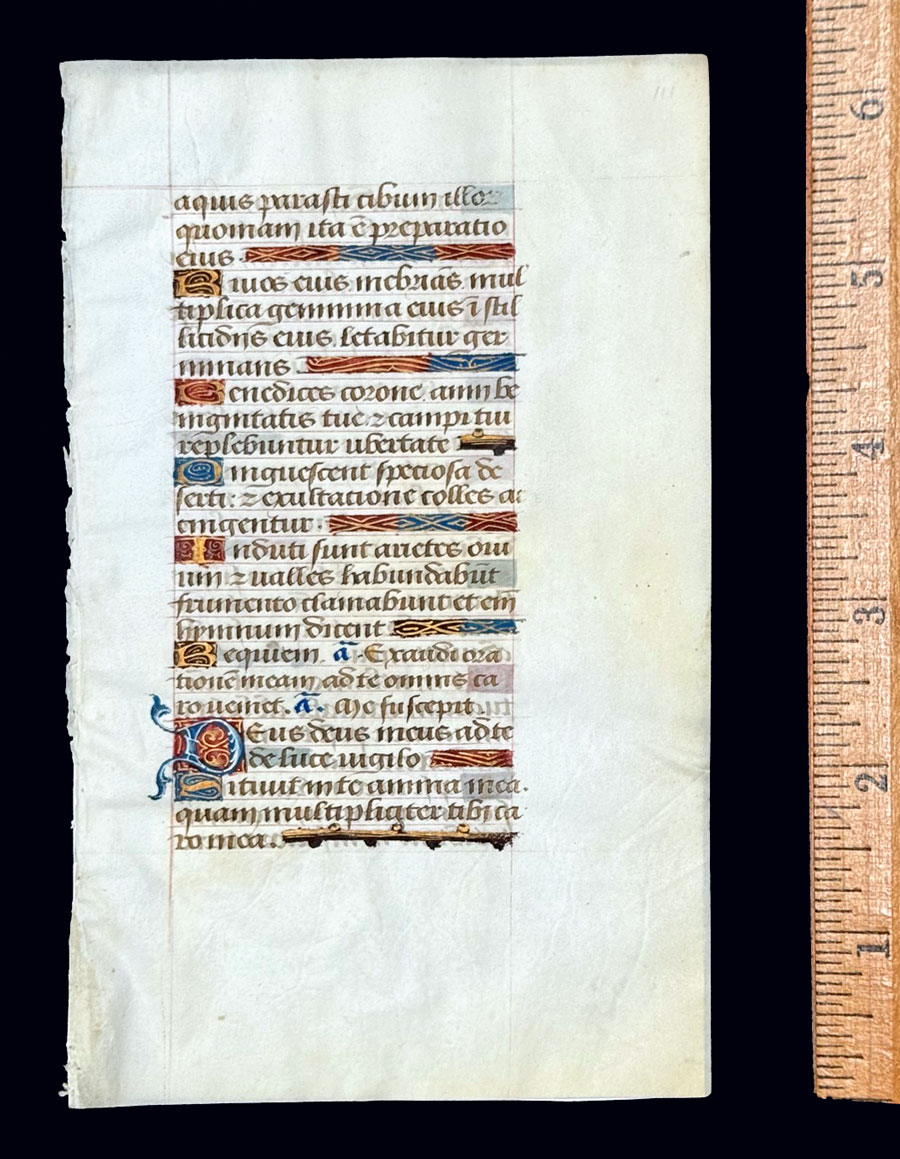 111
aquis parasti cibum illoꝝ
quoniam ita ē preparatio
eius
Riuos eius inebrias mul
tiplica genimina eius ī stil
licidijs eius letabitur ger
minans
Benedices corone anni be
nignitatis tue ⁊ campi tui
replebuntur ubertate
Pinguescent speciosa de
serti: ⁊ exultatione colles ac
cingentur
Induti sunt arietes oui
um ⁊ ualles habundabūt
frumento clamabunt et em̄
hymnum dicent
Requiem. a̅. Exaudi ora
tionē meam ad te omnis ca
ro ueniet. a̅. Me suscepit
Deus deus meus ad te
de luce uigilo
Sitiuit in te anima mea.
quam multipliciter tibi ca
ro mea.
6
5
4
3
2
1